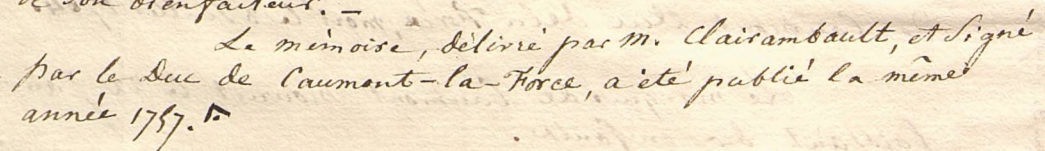 de son bienfaiteur. —
Le mémoire, délivré par M. Clairambault, et Signé
par le Duc de Caumont-la-Force, a été publié la même
année 1757.